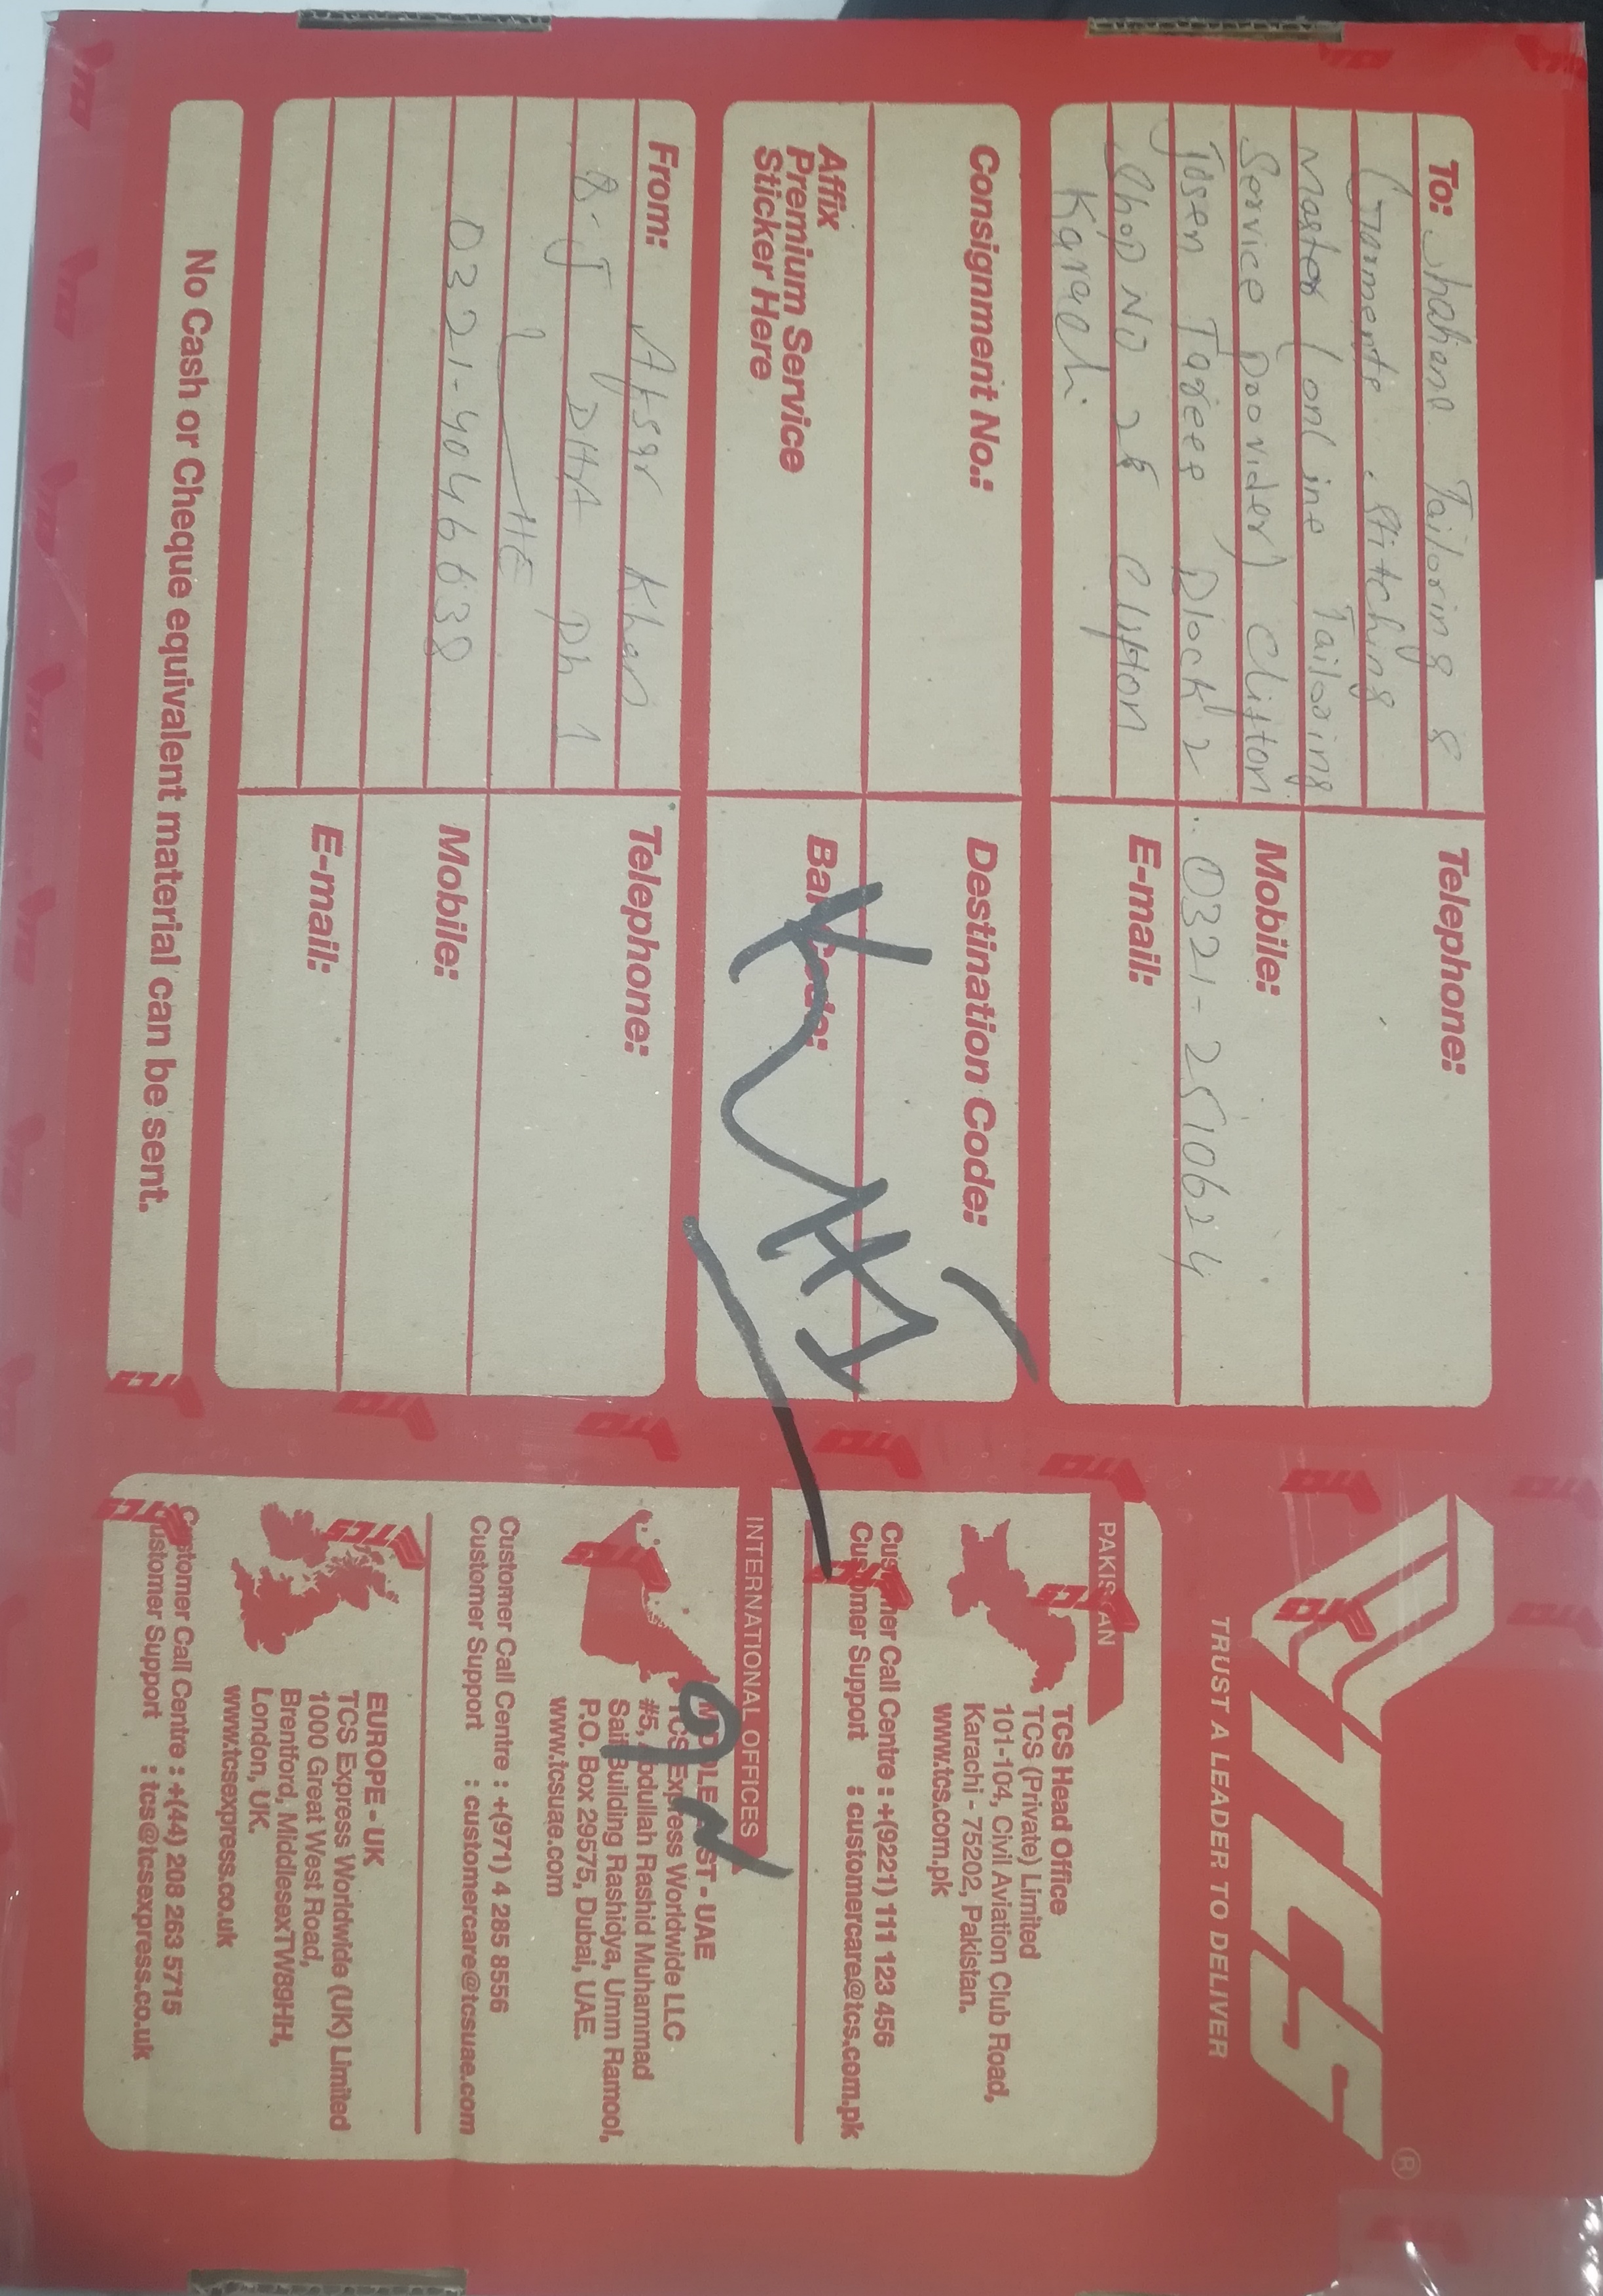 To: Shahens Tailoring &
Garments . Stitching
Master (online Tailoring
Service Provider) Clifton
Block 2
Shop NO 28 Clifton
Karachi
Telephone:
Mobile:
0321-2510624
E-mail:
Consignment No.:
Destination Code:
Affix
Premium Service
Sticker Here
Bar Code:
KHI
From: Afsar Khan
DHA Ph 1
LHE
0321-4046638
Telephone:
Mobile:
E-mail:
No Cash or Cheque equivalent material can be sent.
TCS
TRUST A LEADER TO DELIVER
PAKISTAN
TCS Head Office
TCS (Private) Limited
101-104, Civil Aviation Club Road,
Karachi - 75202, Pakistan.
www.tcs.com.pk
Customer Call Centre : +(9221) 111 123 456
Customer Support : customercare@tcs.com.pk
INTERNATIONAL OFFICES
MIDDLE EAST - UAE
TCS Express Worldwide LLC
#5, Abdullah Rashid Muhammad
Saif Building Rashidya, Umm Ramool,
P.O. Box 29575, Dubai, UAE.
www.tcsuae.com
Customer Call Centre : +(971) 4 285 8556
Customer Support : customercare@tcsuae.com
EUROPE - UK
TCS Express Worldwide (UK) Limited
1000 Great West Road,
Brentford, MiddlesexTW89HH,
London, UK.
www.tcsexpress.co.uk
Customer Call Centre : +(44) 208 263 5715
Customer Support : tcs@tcsexpress.co.uk